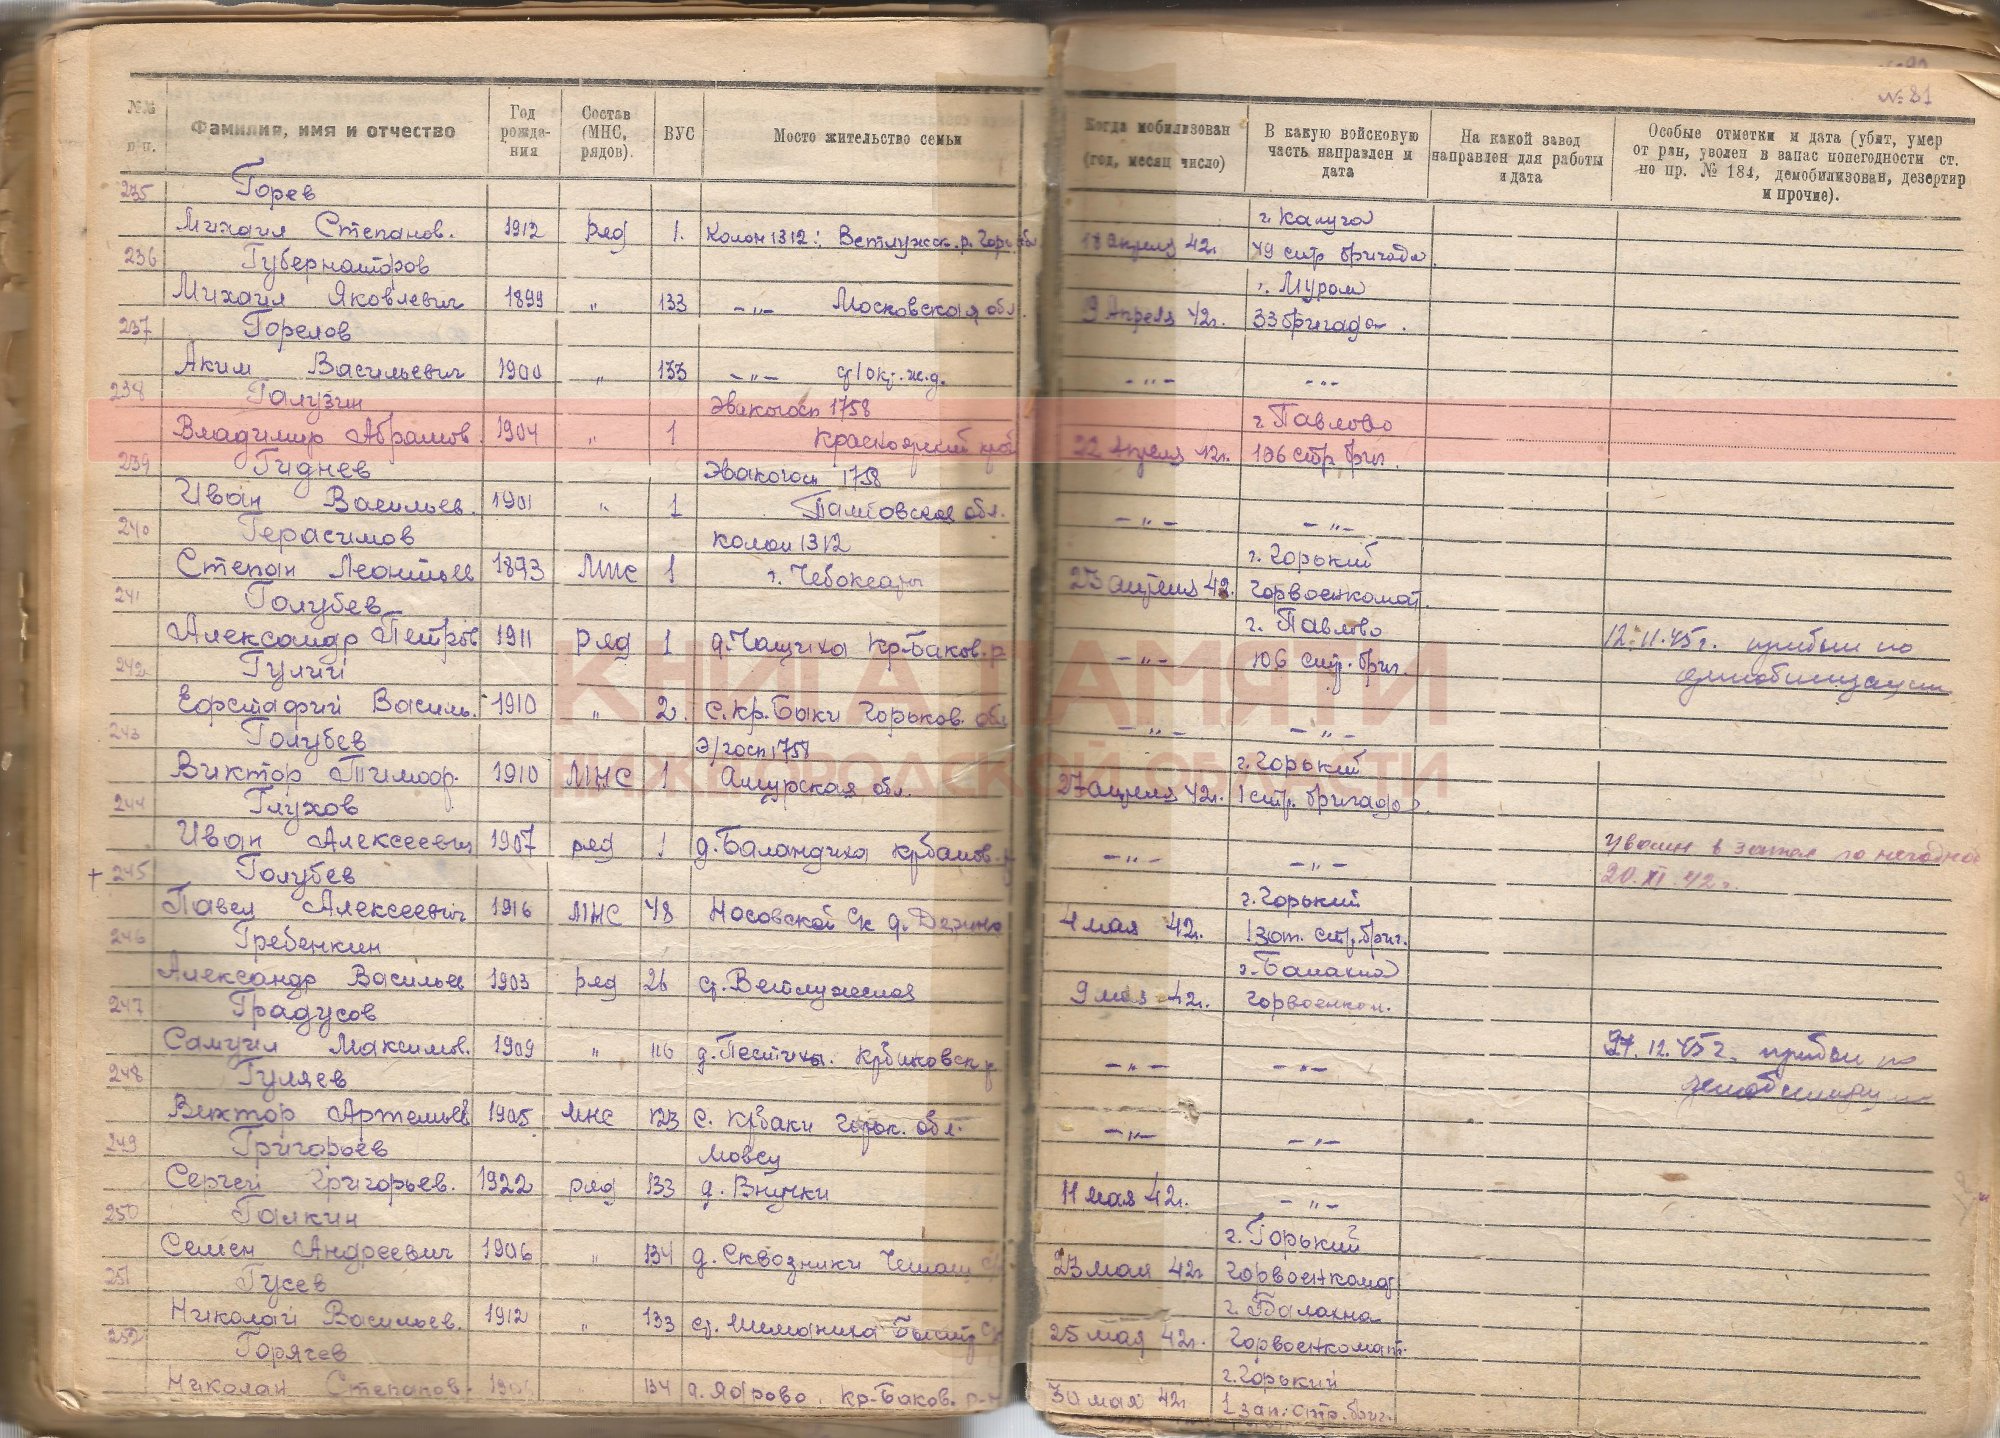 № 81
№№ п/п.
Фамилия, имя и отчество
Год рожда-ния
Состав (МНС, рядов).
ВУС
Мосто жительство семьи
Когда мобилизован (год, месяц число)
В какую войсковую часть направлен и дата
На какой завод направлен для работы и дата
Особые отметки и дата (убит, умер от ран, уволен в запас понегодности ст. по пр. № 184, демобилизован, дезертир и прочие).
235 Горев
г. Калуга
Михаил Степанов. 1912 ряд 1. Колон 1312: Ветлужск. р. Горь обл 18 апреля 42г. 49 стр бригада.
236 Губернаторов
г. Муром
Михаил Яковлевич 1899 " 133 -"- Московская обл. 9 Апреля 42г. 33 бригада.
237 Горелов
Аким Васильевич 1900 " 133 -"- ж.д. -"- -"-
238 Галузин Эвакогосп 1758
г. Павлово
Владимир Абрамов. 1904 " 1 Красноярский край 22 Апреля 42г. 106 стр бриг.
239 Гиднев Эвакогосп 1758
Иван Васильев. 1901 " 1 Тамбовская обл. -"- -"-
240 Герасимов колон 1312
г. Горький
Степан Леонтьев 1893 МНС 1 г. Чебоксары 23 апреля 42. Горвоенкомат.
241 Голубев
г. Павлово
Александр Петров 1911 ряд 1 д. Чащиха Кр-Баков. р -"- 106 стр. бриг. 12.11.45 г. прибыл по
демобилизации
242 Гулий
Ефстафий Василь. 1910 " 2. с. Кр. Баки Горьков. обл -"- -"-
243 Голубев Э/госп 1758
г. Горький
Виктор Тимоф. 1910 МНС 1 Амурская обл. 27 апреля 42г. 1 стр. бригада.
244 Глухов
Иван Алексеевич 1907 ряд 1 д. Баландиха крбаков. р -"- -"- уволен в запас по негодное
20.XI.42 г.
+ 245 Голубев
г. Горький
Павел Алексеевич 1916 МНС 48 Носовской Ск д. Дерино 4 мая 42г. 1 зап. стр. бриг.
246 Гребенкин
г. Балахна
Александр Васильев 1903 ряд 26 ст. Ветлужская 9 мая 42г. Горвоенком.
247 Градусов
Самуил Максимов. 1909 " 116 д. Пестиха. Крбаковск р -"- -"- 27.12.45 г. прибыл по
демобилизации
248 Гуляев
Виктор Артемьев 1905 МНС 123 с. Крбаки Горьк. обл. -"- -"-
249 Григорьев
Сергей Григорьев. 1922 ряд 133 д. 11 мая 42г. -"-
250 Галкин
г. Горький
Семен Андреевич 1906 " 134 д. Сквозники 23 мая 42г Горвоенкомат
251 Гусев
г. Балахна
Николай Васильев. 1912 " 133 ст. Шеманиха 25 мая 42г. Горвоенкомат.
252 Горячев
г. Горький
Николай Степанов. 134 Кр-Баков. р-н 30 мая 42г 1 зап. стр. бриг.
КНИГА ПАМЯТИ
НИЖЕГОРОДСКОЙ ОБЛАСТИ